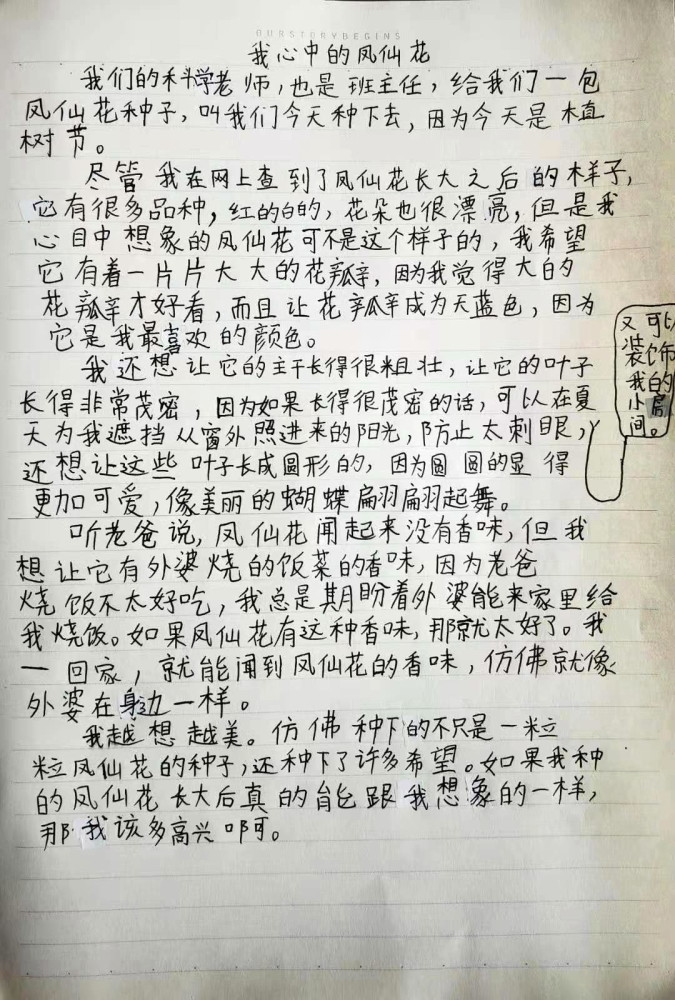 OURSTORYBEGINS
我心中的凤仙花
我们的科学老师,也是班主任,给我们一包
凤仙花种子,叫我们今天种下去,因为今天是植
树节。
尽管我在网上查到了凤仙花长大之后的样子,
它有很多品种,红的白的,花朵也很漂亮,但是我
心目中想象的凤仙花可不是这个样子的,我希望
它有着一片片大大的花瓣,因为我觉得大的
花瓣才好看,而且让花瓣成为天蓝色,因为
它是我最喜欢的颜色。
我还想让它的主干长得很粗壮,让它的叶子
长得非常茂密,因为如果长得很茂密的话,可以在夏
天为我遮挡从窗外照进来的阳光,防止太刺眼,
又可以
装饰
我的
小房
间。
还想让这些叶子长成圆形的,因为圆圆的显得
更加可爱,像美丽的蝴蝶翩翩起舞。
听老爸说,凤仙花闻起来没有香味,但我
想让它有外婆烧的饭菜的香味,因为老爸
烧饭不太好吃,我总是期盼着外婆能来家里给
我烧饭。如果凤仙花有这种香味,那就太好了。我
一回家,就能闻到凤仙花的香味,仿佛就像
外婆在身边一样。
我越想越美。仿佛种下的不只是一粒
粒凤仙花的种子,还种下了许多希望。如果我种
的凤仙花长大后真的能跟我想象的一样,
那我该多高兴啊。